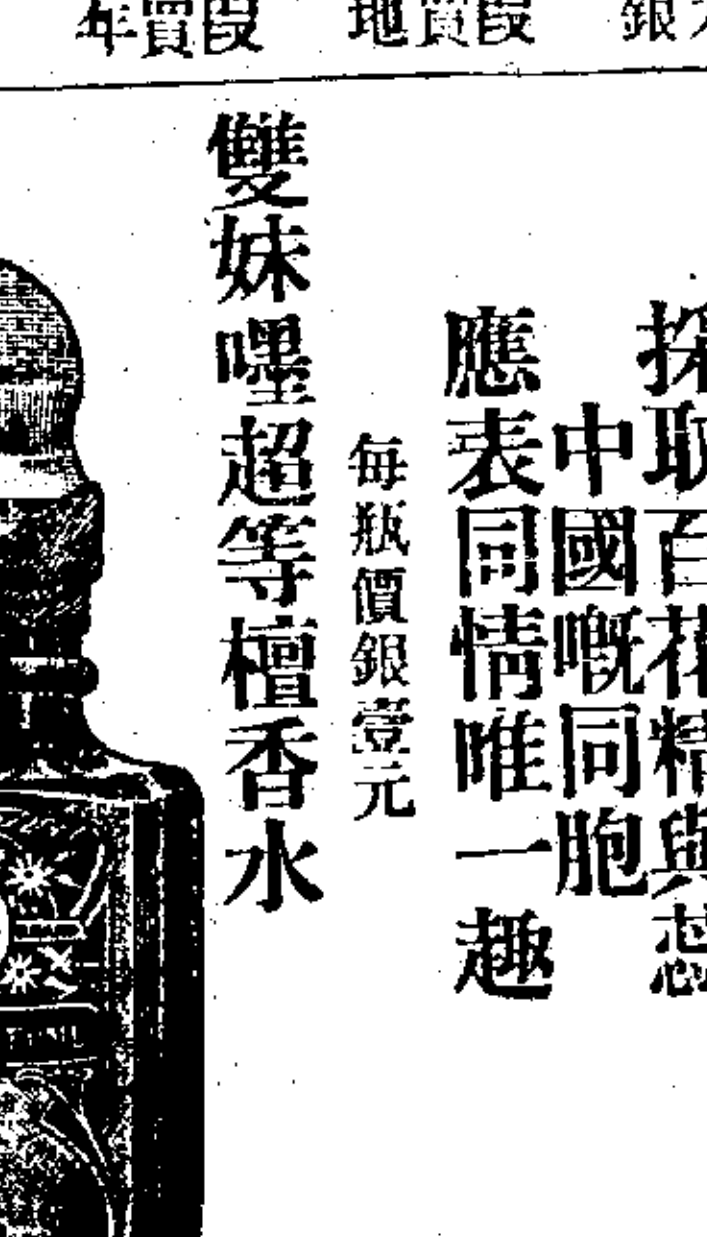 採取百花精與
中國嘅同胞
應表同情唯一趣
每瓶價銀壹元
雙妹嚜超等檀香水